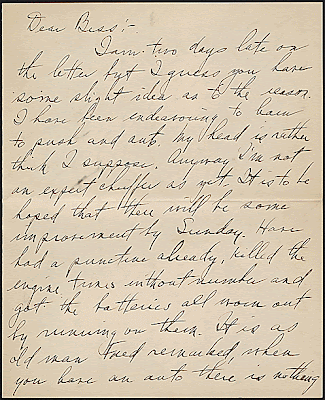 Dear Bess:-
I am two days late on
the letter but I guess you have
some slight idea as to the reason.
I have been endeavoring to learn
to push and auto. My head is rather
thick I suppose. Anyway I'm not
an expert chuffer as yet. It is to be
hoped that there will be some
improvement by Sunday. Have
had a puncture already, killed the
engine times without number and
got the batteries all worn out
by running on them. It is as
old man Fred remarked, when
you have an auto there is nothing